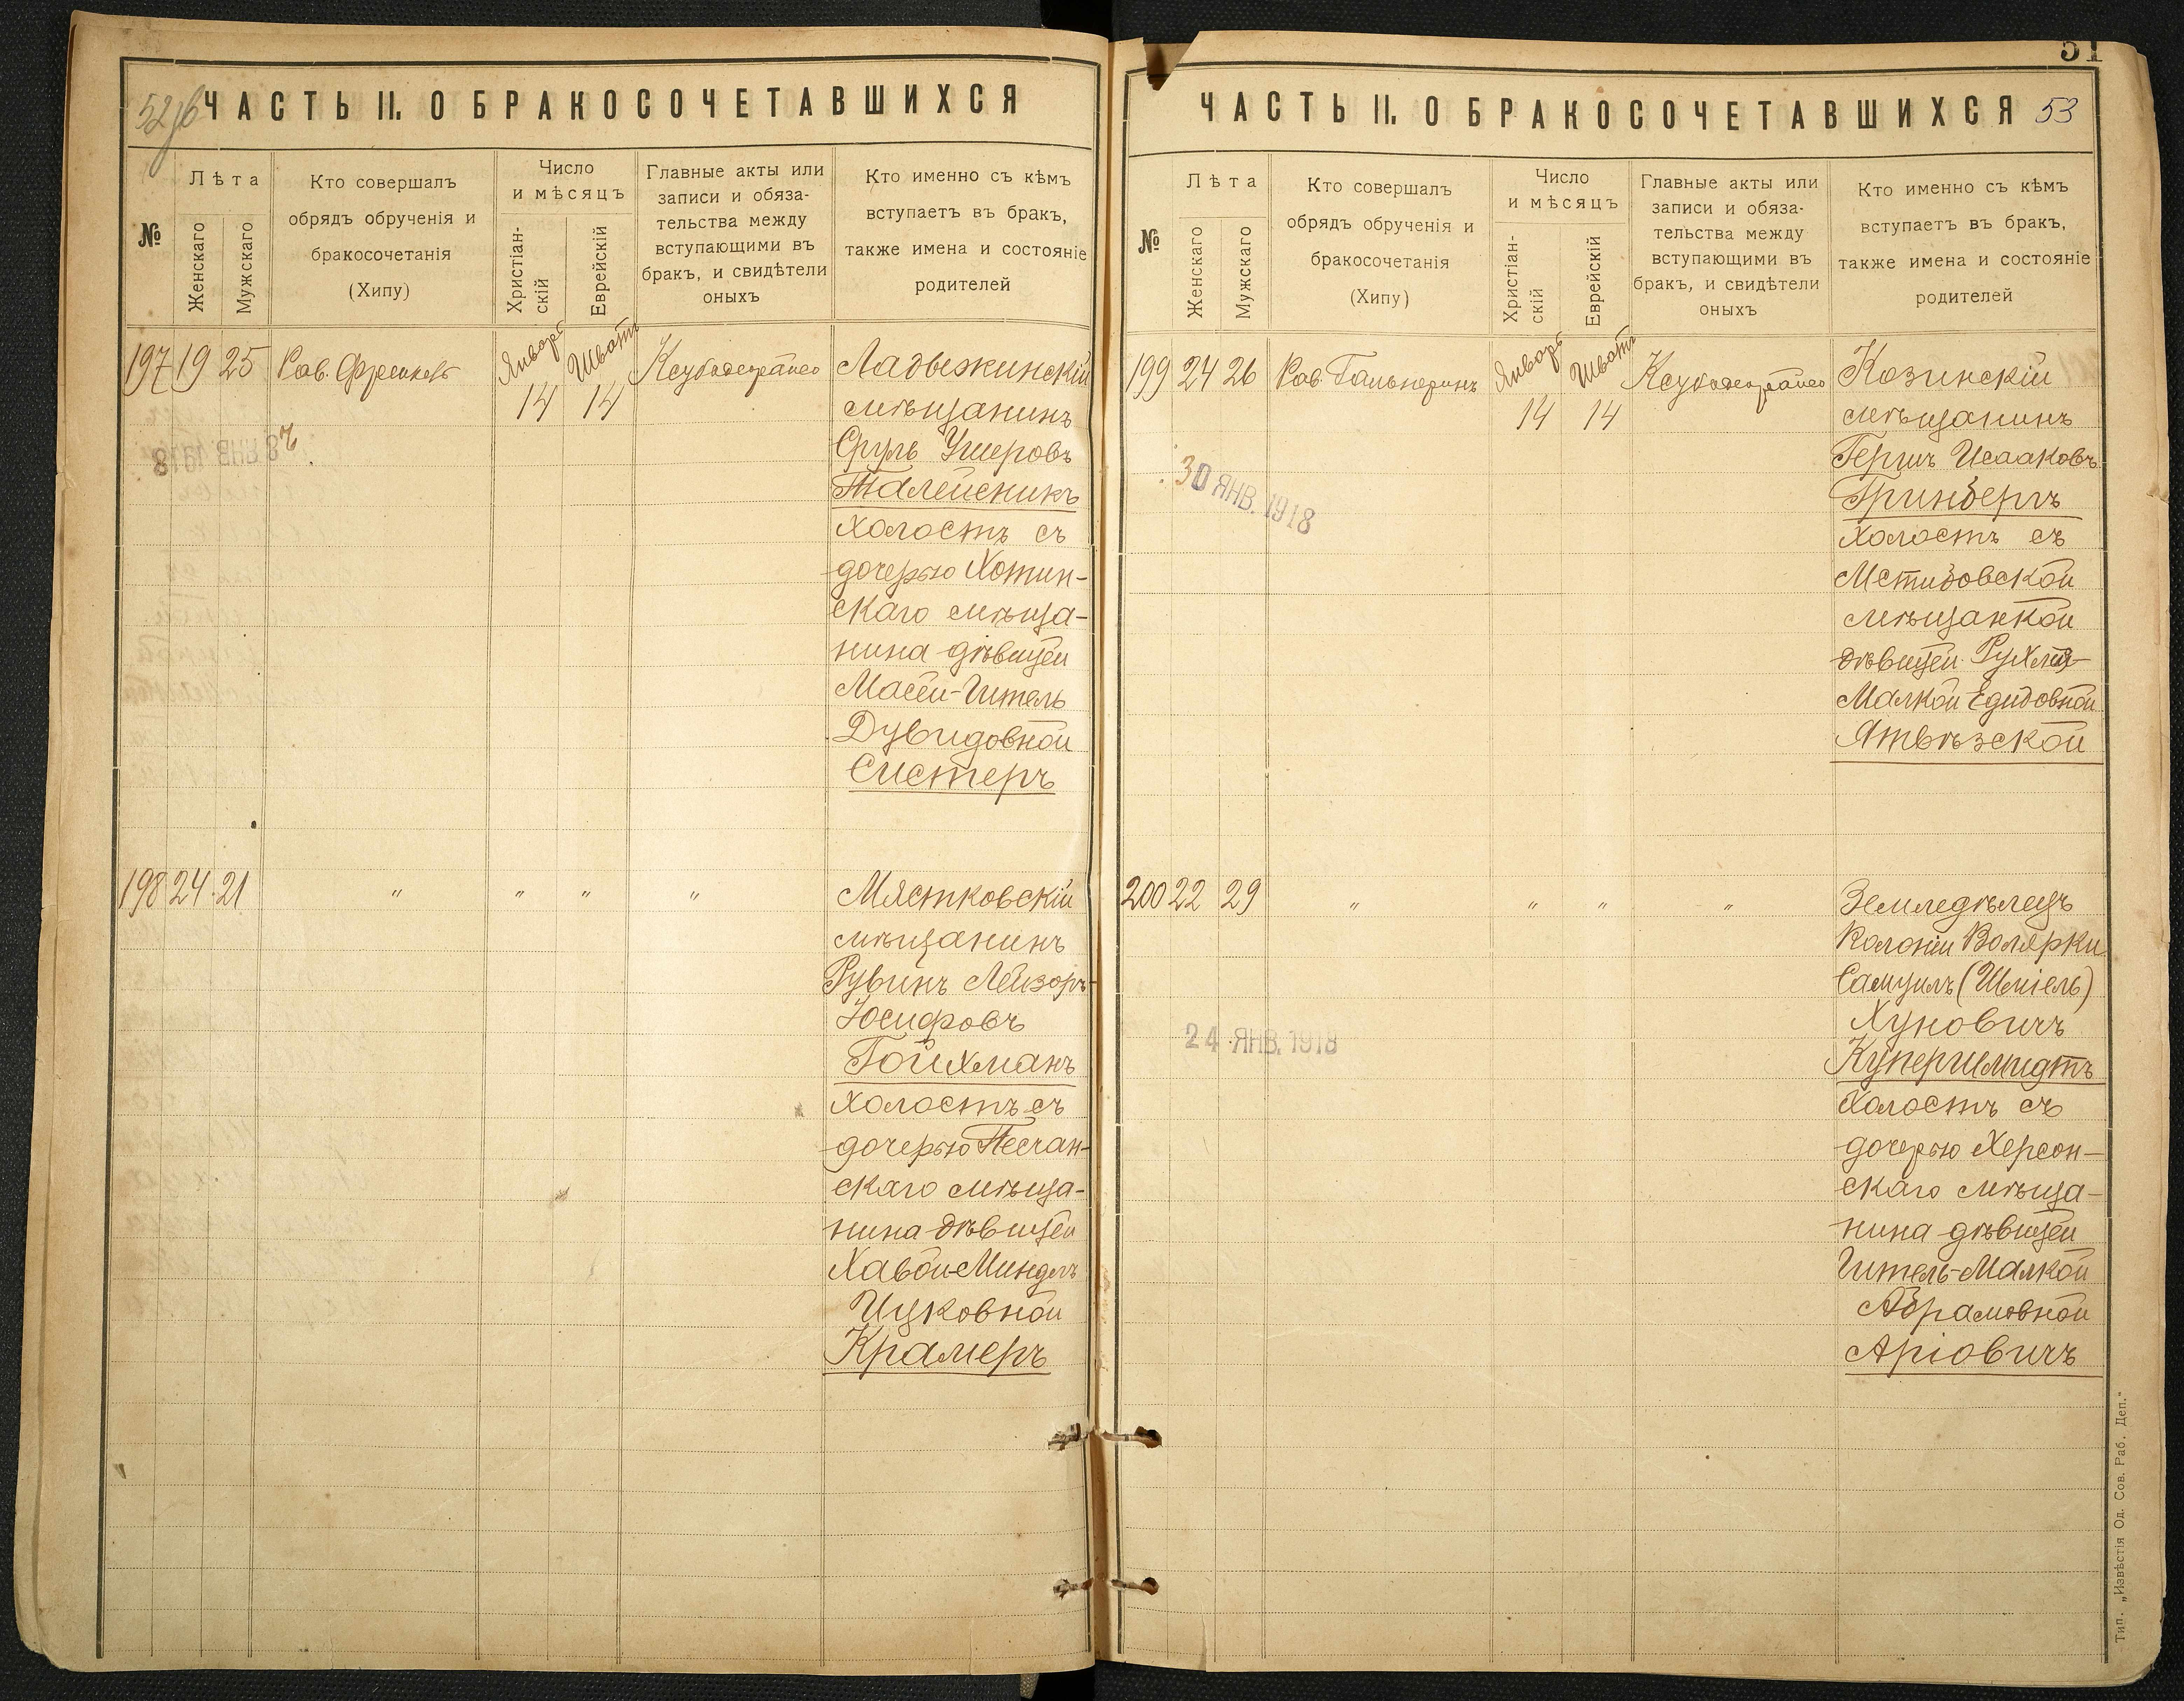 52 об
ЧАСТЬ II. О БРАКОСОЧЕТАВШИХСЯ
№
Лѣта
Женскаго
Мужскаго
Кто совершалъ
обрядъ обрученія и
бракосочетанія
(Хипу)
Число
и мѣсяцъ
Христіан-
скій
Еврейскій
Главные акты или
записи и обяза-
тельства между
вступающими въ
бракъ, и свидѣтели
оныхъ
Кто именно съ кѣмъ
вступаетъ въ бракъ,
также имена и состояніе
родителей
197 19 25 Рав. Январь 14 Шватъ 14
Ладыжинскій
мѣщанинъ
Сруль Умеровъ
Талейсникъ
холостъ съ
дочерью Хотин-
скаго мѣща-
нина дѣвицей
Масей-Гитель
Дувидовной
Систеръ
8 ЯНВ. 1918
198 24 21 " " " "
Мястковскій
мѣщанинъ
Рувинъ Лейзоръ-
Юсифовъ
Гойхманъ
холостъ съ
дочерью Песчан-
скаго мѣща-
нина дѣвицей
Хавой-Миндль
Ицковной
Крамеръ
51
ЧАСТЬ II. О БРАКОСОЧЕТАВШИХСЯ 53
№
Лѣта
Женскаго
Мужскаго
Кто совершалъ
обрядъ обрученія и
бракосочетанія
(Хипу)
Число
и мѣсяцъ
Христіан-
скій
Еврейскій
Главные акты или
записи и обяза-
тельства между
вступающими въ
бракъ, и свидѣтели
оныхъ
Кто именно съ кѣмъ
вступаетъ въ бракъ,
также имена и состояніе
родителей
199 24 26 Рав. Гальперинъ Январь 14 Шватъ 14
Козинскій
мѣщанинъ
Гершъ Исааковъ
Гринбергъ
холостъ съ
Мстибовской
мѣщанкой
дѣвицей Рухля-
Малкой Едидовной
Ятвѣзской
30 ЯНВ. 1918
200 22 29 " " " "
Земледѣлецъ
колоніи Волярки
Самуилъ (Шміель)
Хуновичъ
Купершмидтъ
холостъ съ
дочерью Херсон-
скаго мѣща-
нина дѣвицей
Гитель-Малкой
Абрамовной
Аріовичъ
24 ЯНВ. 1918
Тип. „Извѣстія Од. Сов. Раб. Деп."